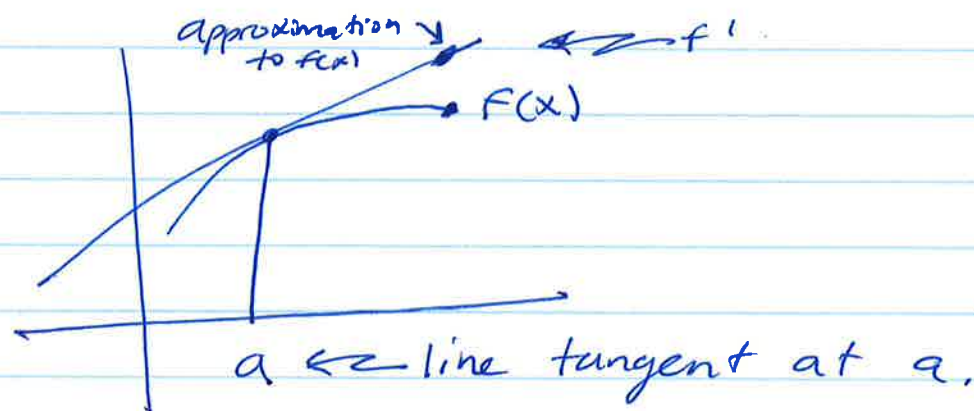 approximation
to f(x)
f'
F(x)
a ⇐ line tangent at a.